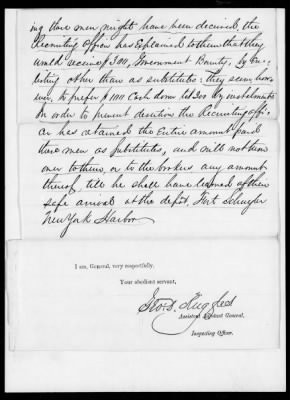 ing these men might have been deceived, the
Recruiting Officer has Explained to them that they
would receive $300, Government Bounty, by En-
listing other than as substitutes: They seem, how-
ever, to prefer $ Cash down to 300 by instalments
In order to prevent desertion the Recruiting offi-
cer has retained the Entire amount paid
these men as substitutes, and will not turn
over to them, or to the brokers any amount
thereof, till he shall have learned of their
safe arrival at the depot, Fort Schuyler
New York Harbor
I am, General, very respectfully,
Your obedient servant,
Assistant Adjutant General,
Inspecting Officer.